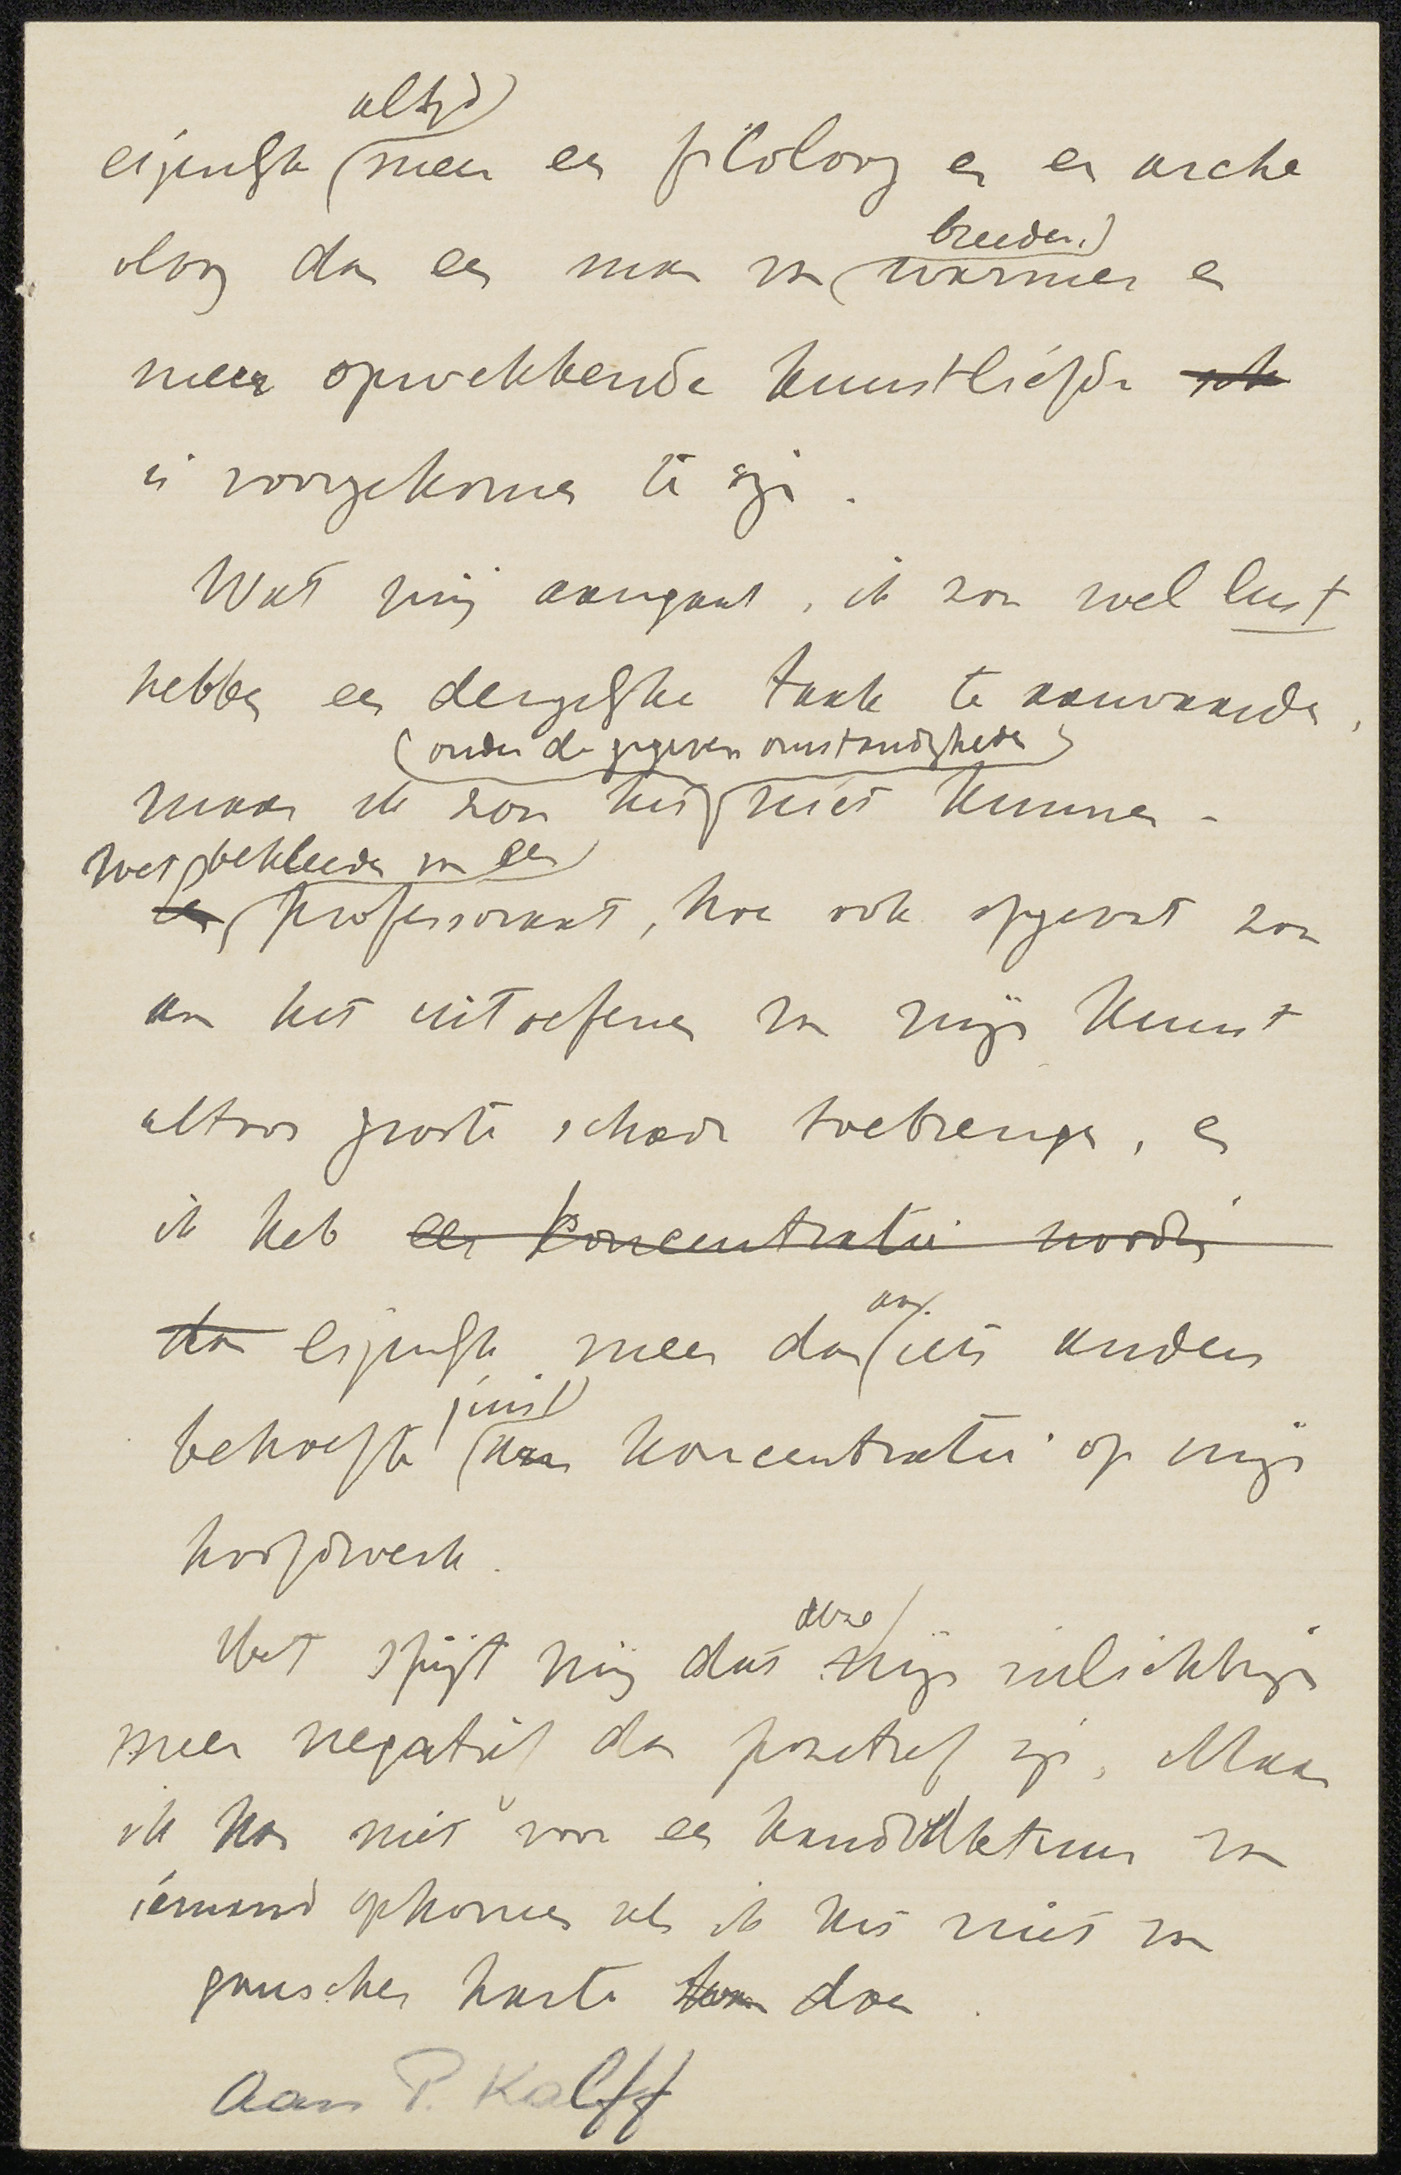 altijd
eigenlijk meer een filoloog en een arche
oloog dan een man van warmer en
breeder
meer opwekkende kunstliefde ook
is voorgekomen te zijn.
Wat mij aangaat, ik zou wel lust
hebben een dergelijke taak te aanvaarden,
(onder de gegeven omstandigheden)
maar ik zou het niet kunnen -
Het bekleeden van een
een professoraat, hoe ook opgevat zou
aan het uitoefenen van mijn kunst
altoos groote schade toebrengen, en
ik heb een koncentratie noodig
dan eigenlijk meer dan iets anders
juist
behoefte aan koncentratie op mijn
hoofdwerk.
deze
Het spijt mij dat mijn inlichtingen
meer negatief dan pozitief zijn. Maar
ik kan niet voor een kandidatuur van
iemand opkomen als ik het niet van
ganscher harte kan doen.
Aan P. Kalff